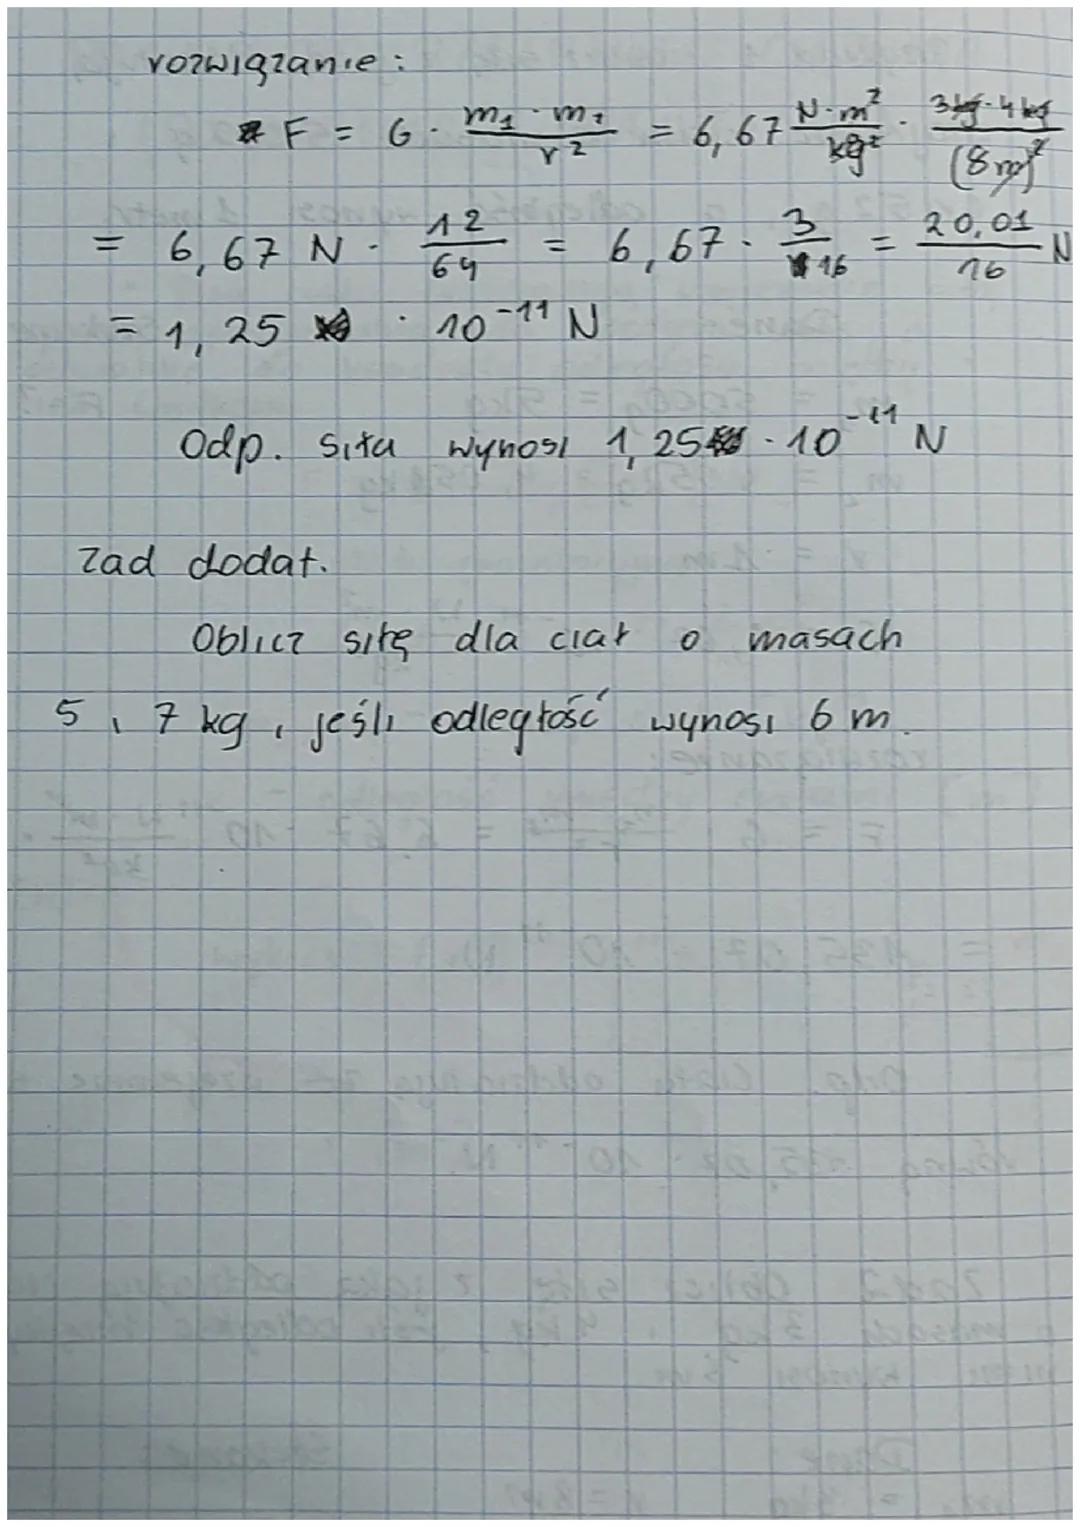 rozwiązanie:
F = G · m₁ · m₂ / r² = 6,67 N·m²/kg² · 3kg·4kg / (8m)²
= 6,67 N · 12/64 = 6,67 · 3/16 = 20,01/16 N
= 1,25 · 10⁻¹¹ N
Odp. siła wynosi 1,25 · 10⁻¹¹ N
zad dodat.
Oblicz siłę dla ciał o masach
5 i 7 kg, jeśli odległość wynosi 6 m.